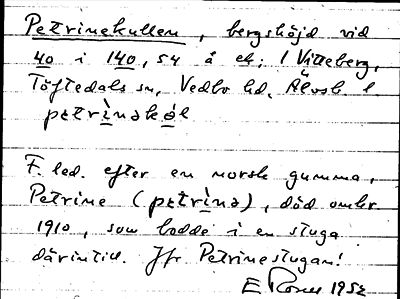 Petrinekullen, bergshöjd vid
40 i 140, 54 å ek; 1 Vitteberg,
Töftedals sn, Vedbo hd, Älvsb. l
pɛtrìnəkə́l
F. led. efter en norsk gumma,
Petrine (pɛtrìnə), död omkr.
1910, som bodde i en stuga
därintill. Jfr Petrinestugan!
1952